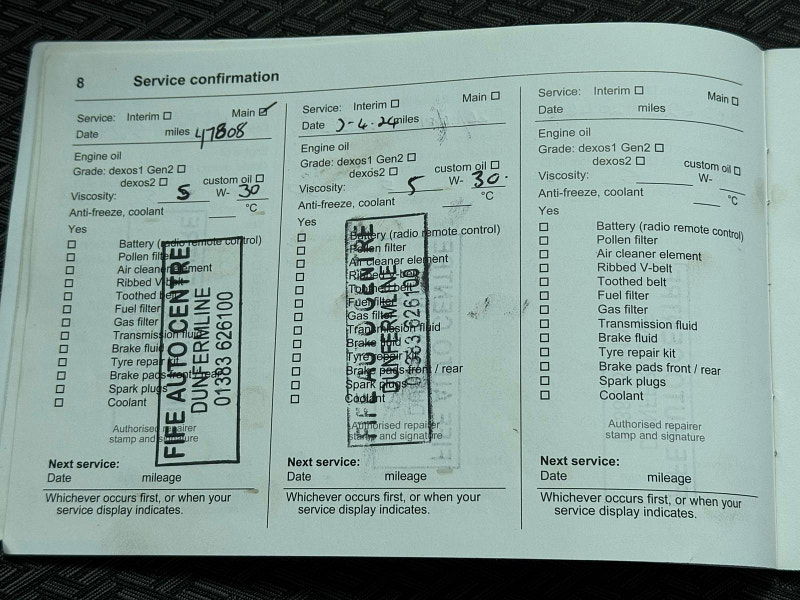 8 Service confirmation
Service: Interim Main
Date miles 47808
Engine oil
Grade: dexos1 Gen2
dexos2 custom oil
Viscosity: 5 W- 30
Anti-freeze, coolant °C
Yes
Battery (radio remote control)
Pollen filter
Air cleaner element
Ribbed V-belt
Toothed belt
Fuel filter
Gas filter
Transmission fluid
Brake fluid
Tyre repair kit
Brake pads front / rear
Spark plugs
Coolant
Authorised repairer
stamp and signature
FIFE AUTO CENTRE
DUNFERMLINE
01383 626100
Next service:
Date mileage
Whichever occurs first, or when your
service display indicates.
Service: Interim Main
Date 4.24 miles
Engine oil
Grade: dexos1 Gen2
dexos2 custom oil
Viscosity: 5 W- 30.
Anti-freeze, coolant °C
Yes
Battery (radio remote control)
Pollen filter
Air cleaner element
Ribbed V-belt
Toothed belt
Fuel filter
Gas filter
Transmission fluid
Brake fluid
Tyre repair kit
Brake pads front / rear
Spark plugs
Coolant
Authorised repairer
stamp and signature
FIFE AUTO CENTRE
DUNFERMLINE
01383 626100
Next service:
Date mileage
Whichever occurs first, or when your
service display indicates.
Service: Interim Main
Date miles
Engine oil
Grade: dexos1 Gen2
dexos2 custom oil
Viscosity: W-
Anti-freeze, coolant °C
Yes
Battery (radio remote control)
Pollen filter
Air cleaner element
Ribbed V-belt
Toothed belt
Fuel filter
Gas filter
Transmission fluid
Brake fluid
Tyre repair kit
Brake pads front / rear
Spark plugs
Coolant
Authorised repairer
stamp and signature
Next service:
Date mileage
Whichever occurs first, or when your
service display indicates.